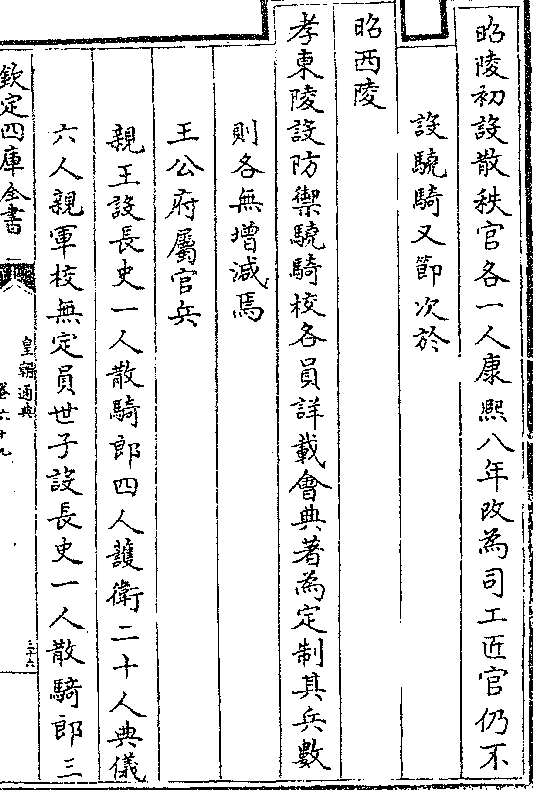 昭陵初設散秩官各一人康熙八年改為司工匠官仍不
設驍騎又節次於
昭西陵
孝東陵設防禦驍騎校各員詳載會典著為定制其兵數
則各無增減焉
王公府屬官兵
親王設長史一人散騎郎四人護衛二十人典儀
六人親軍校無定員世子設長史一人散騎郎三
欽定四庫全書
皇朝通典
卷六十九
三十六